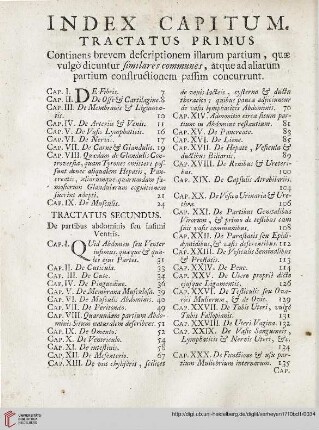 INDEX CAPITUM.
TRACTATUS PRIMUS
Continens brevem descriptionem illarum partium, quæ
vulgò dicuntur similares communes, atque ad aliarum
partium constructionem passim concurrunt.
CAP. I. DE Fibris. 7
CAP. II. De Osse & Cartilagine. 8
CAP. III. De Membrana & Ligamento-
ris. 10
CAP. IV. De Arteriis & Venis. 11
CAP. V. De Vasis Lymphaticis. 16
CAP. VI. De Nervo. 17
CAP. VII. De Carne & Glandulis. 19
CAP. VIII. Quædam de Glandulis Con-
troversia, quam Tyrones omittere pos-
sunt donec aliqualem Hepatis, Pan-
creatis, aliarumque quarundam fa-
mosiorum Glandularum cognitionem
fuerint adepti. 21
CAP. IX. De Musculis. 24
TRACTATUS SECUNDUS.
De partibus abdominis seu infimi
Ventris.
CAP. I. QUid Abdomen seu Venter
infimus, quæque & qua-
les ejus Partes. 31
CAP. II. De Cuticula. 33
CAP. III. De Cute. 34
CAP. IV. De Pinguedine. 36
CAP. V. De Membrana Musculosa. 39
CAP. VI. De Musculis Abdominis. 40
CAP. VII. De Peritonæo. 49
CAP. VIII. Quarundam partium Abdo-
minis Situm naturalem describens. 51
CAP. IX. De Omento. 52
CAP. X. De Ventriculo. 54
CAP. XI. De intestinis. 58
CAP. XII. De Mesenterio. 67
CAP. XIII. De vasis chyliferis, scilicet
de venis lacteis, cisterna & ductu
thoracico; quibus pauca adjiciuntur
de vasis lymphaticis Abdominis. 70
CAP. XIV. Admonitio circa situm par-
tium in Abdomine restantium. 81
CAP. XV. De Pancreate. 83
CAP. XVI. De Liene. 85
CAP. XVII. De Hepate, Vesicula &
ductibus Biliariis. 89
CAP. XVIII. De Renibus & Ureteri-
bus. 100
CAP. XIX. De Capsulis Atrabilariis.
104
CAP. XX. De Vesica Urinaria & Ure-
thra. 106
CAP. XXI. De Partibus Genitalibus
Virorum, & primo de testibus cum
suis vasis communibus. 108
CAP. XXII. De Parastatis seu Epidi-
dymidibus, & vasis deferentibus. 112
CAP. XXIII. De Vesiculis Seminalibus
& Prostatis. 113
CAP. XXIV. De Pene. 114
CAP. XXV. De Utero proprie dicto
ejusque Ligamentis. 126
CAP. XXVI. De Testiculis seu Ova-
riis Mulierum, & de Ovis. 129
CAP. XXVII. De Tubis Uteri, vulgò
Tubis Fallopianis. 131
CAP. XXVIII. De Uteri Vagina. 132
CAP. XXIX. De Vasis Sanguineis,
Lymphaticis & Nervis Uteri, &c.
CAP. XXX. De Functione & usu par-
tium Muliebrium internarum. 135
CAP.
UNIVERSITÄTS-
BIBLIOTHEK
HEIDELBERG
http://digi.ub.uni-heidelberg.de/diglit/verheyen1710bd1/0034